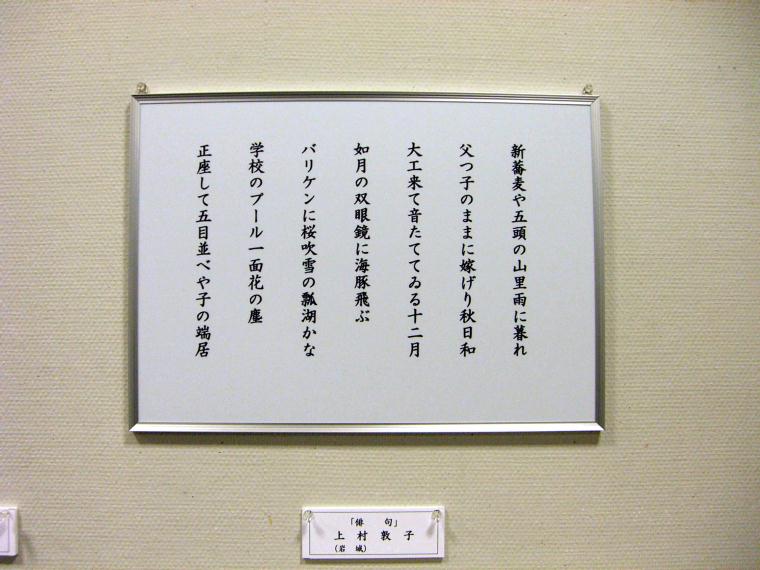 新蕎麦や五頭の山里雨に暮れ
父つ子のままに嫁げり秋日和
大工来て音たててゐる十二月
如月の双眼鏡に海豚飛ぶ
バリケンに桜吹雪の瓢湖かな
学校のプール一面花の塵
正座して五目並べや子の端居
「俳　句」
上　村　敦　子
（岩　城）